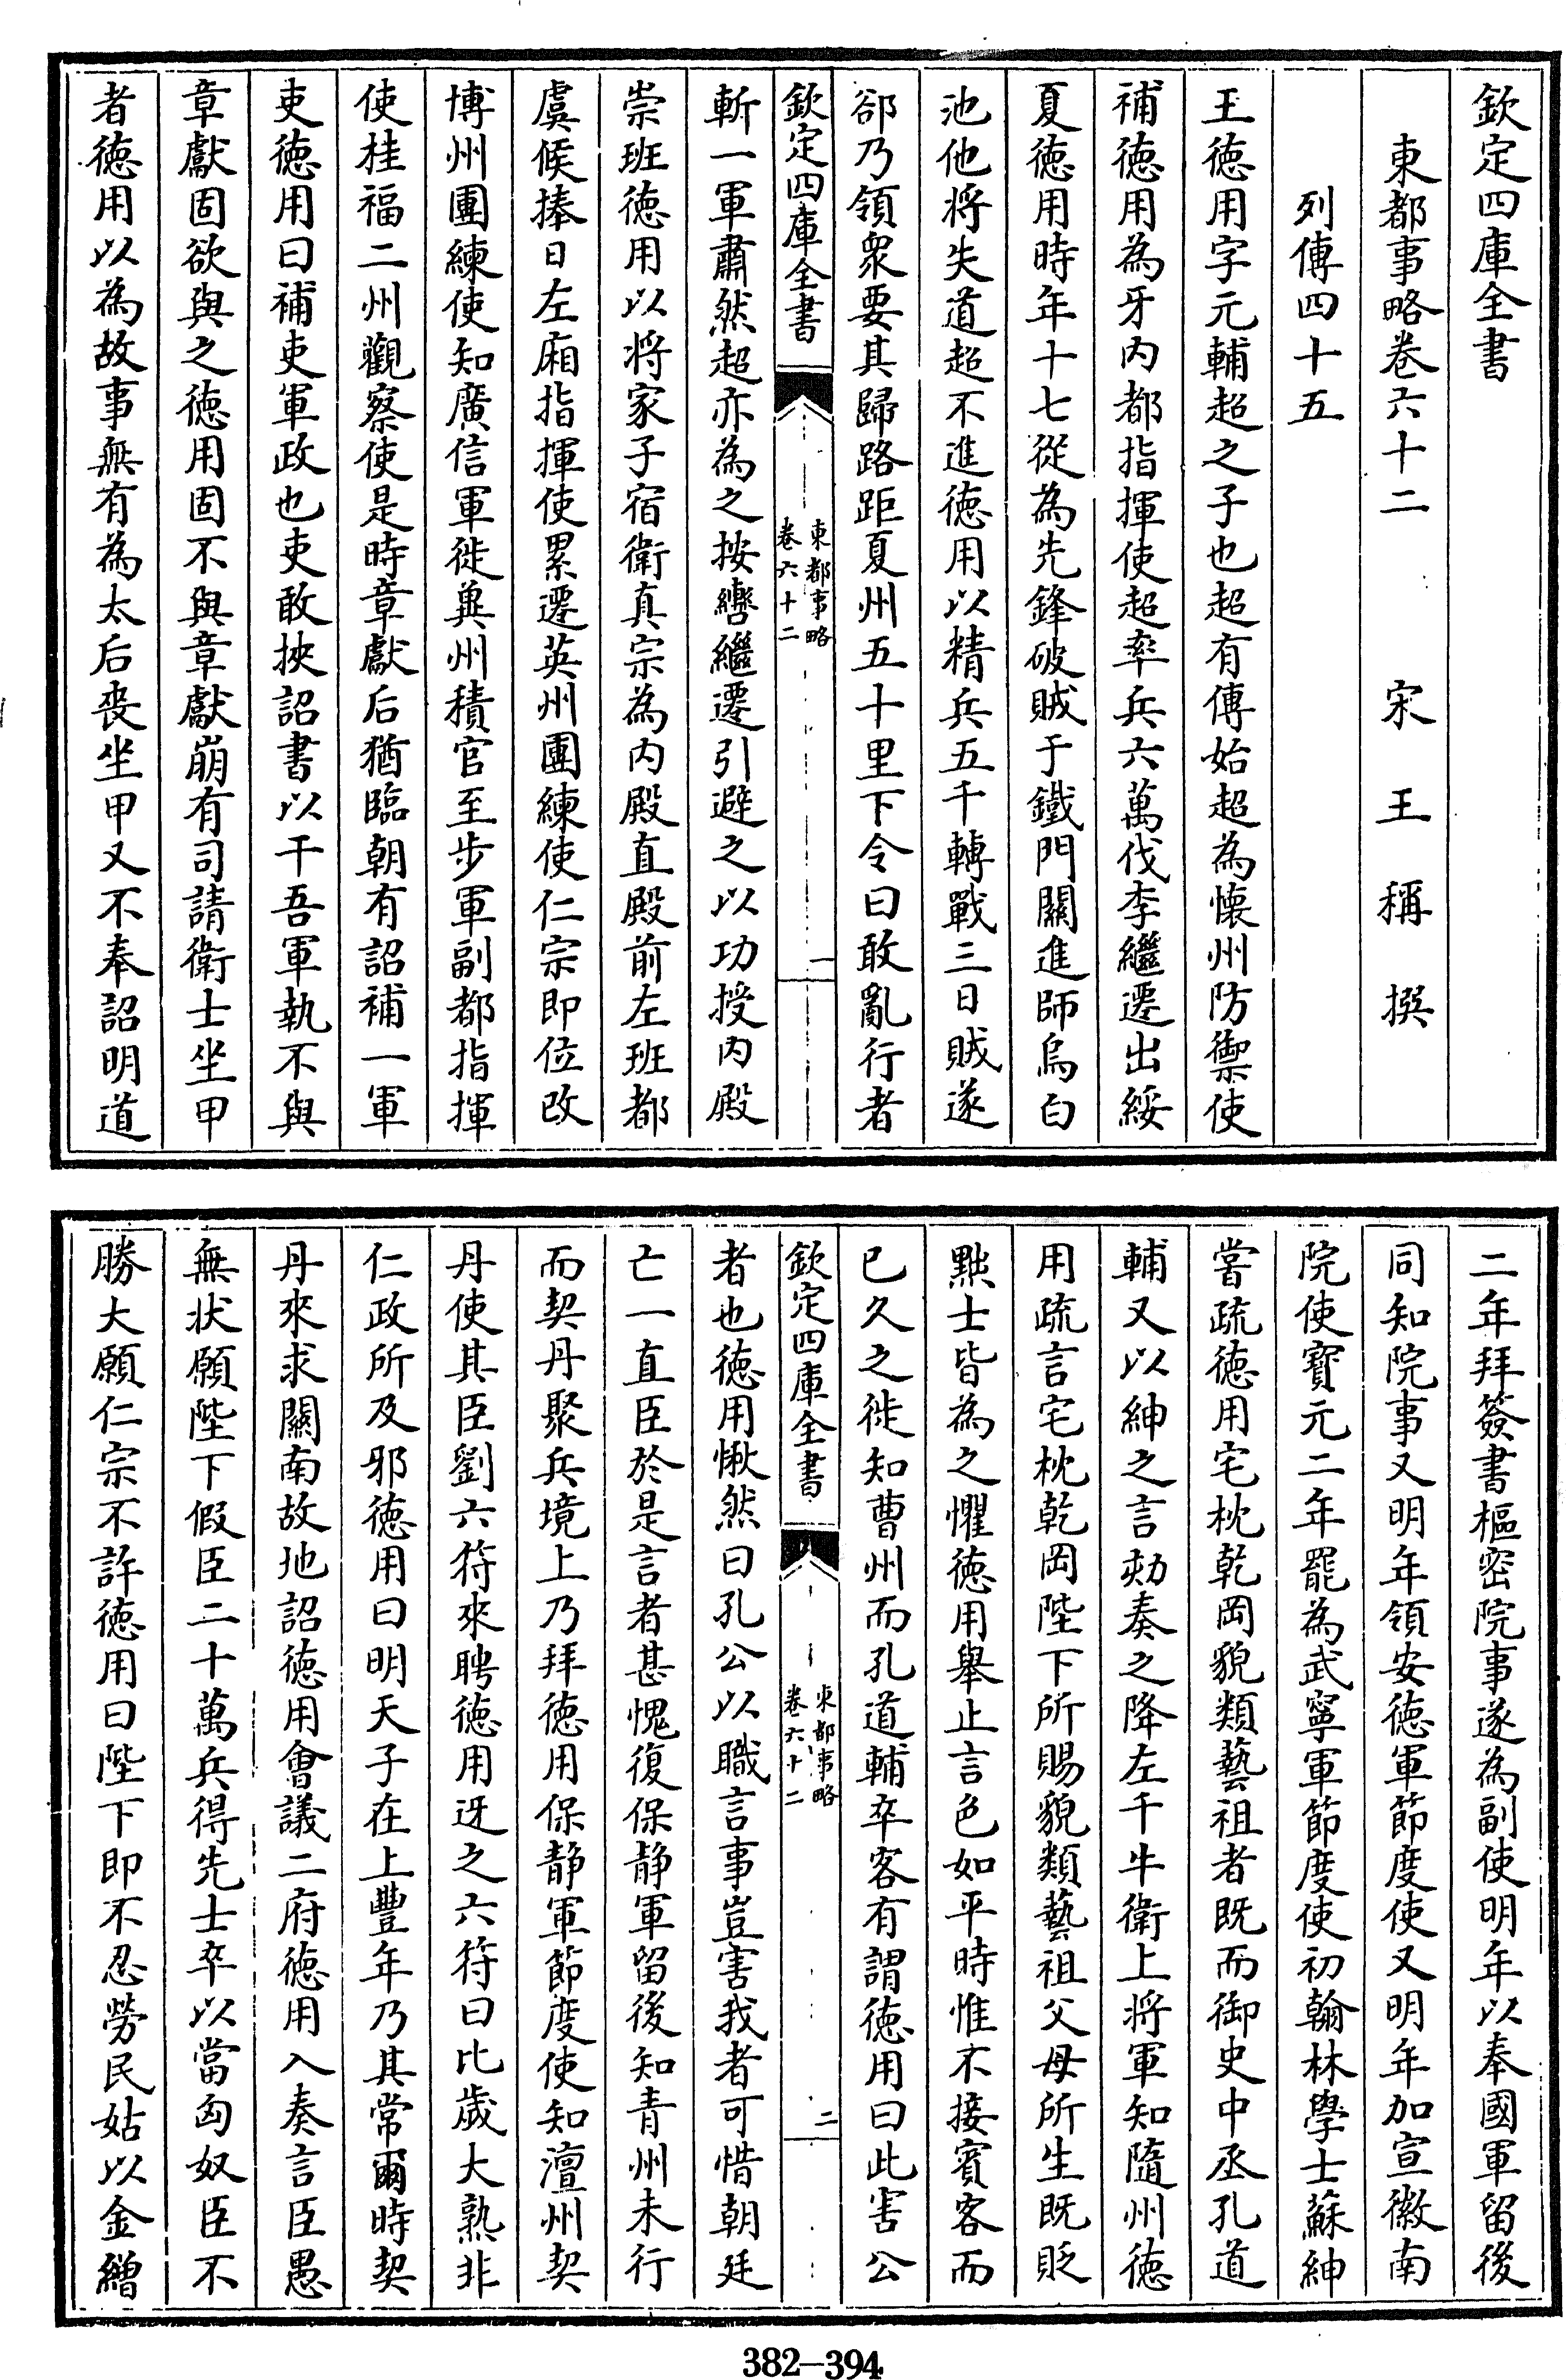 欽定四庫全書
東都事略卷六十二　宋　王　稱　撰
列傳四十五
王徳用字元輔超之子也超有傳始超為懷州防禦使
補徳用為牙内都指揮使超率兵六萬伐李繼遷出綏
夏徳用時年十七從為先鋒破賊于鐵門關進師烏白
池他将失道超不進徳用以精兵五千轉戰三日賊遂
郤乃領衆要其歸路距夏州五十里下令曰敢亂行者
欽定四庫全書
東都事略
卷六十二
一
斬一軍肅然超亦為之按轡繼遷引避之以功授内殿
崇班徳用以将家子宿衛真宗為内殿直殿前左班都
虞候捧日左廂指揮使累遷英州團練使仁宗即位改
博州團練使知廣信軍徙兾州積官至步軍副都指揮
使桂福二州觀察使是時章獻后猶臨朝有詔補一軍
吏徳用曰補吏軍政也吏敢挾詔書以干吾軍執不與
章獻固欲與之徳用固不與章獻崩有司請衛士坐甲
者徳用以為故事無有為太后喪坐甲又不奉詔明道
二年拜簽書樞密院事遂為副使明年以奉國軍留後
同知院事又明年領安徳軍節度使又明年加宣徽南
院使寳元二年罷為武寧軍節度使初翰林學士蘇紳
嘗疏徳用宅枕乾岡貌類藝祖者既而御史中丞孔道
輔又以紳之言劾奏之降左千牛衛上将軍知隨州徳
用疏言宅枕乾岡陛下所賜貌類藝祖父母所生既貶
㸃士皆為之懼徳用舉止言色如平時惟不接賓客而
已久之徙知曹州而孔道輔卒客有謂徳用曰此害公
欽定四庫全書
東都事略
卷六十二
二
者也徳用愀然曰孔公以職言事豈害我者可惜朝廷
亡一直臣於是言者甚愧復保静軍留後知青州未行
而契丹聚兵境上乃拜徳用保静軍節度使知澶州契
丹使其臣劉六符來聘徳用迓之六符曰比歲大熟非
仁政所及邪徳用曰明天子在上豐年乃其常爾時契
丹來求關南故地詔徳用會議二府徳用入奏言臣愚
無状願陛下假臣二十萬兵得先士卒以當匈奴臣不
勝大願仁宗不許徳用曰陛下即不忍勞民姑以金繒
382-394